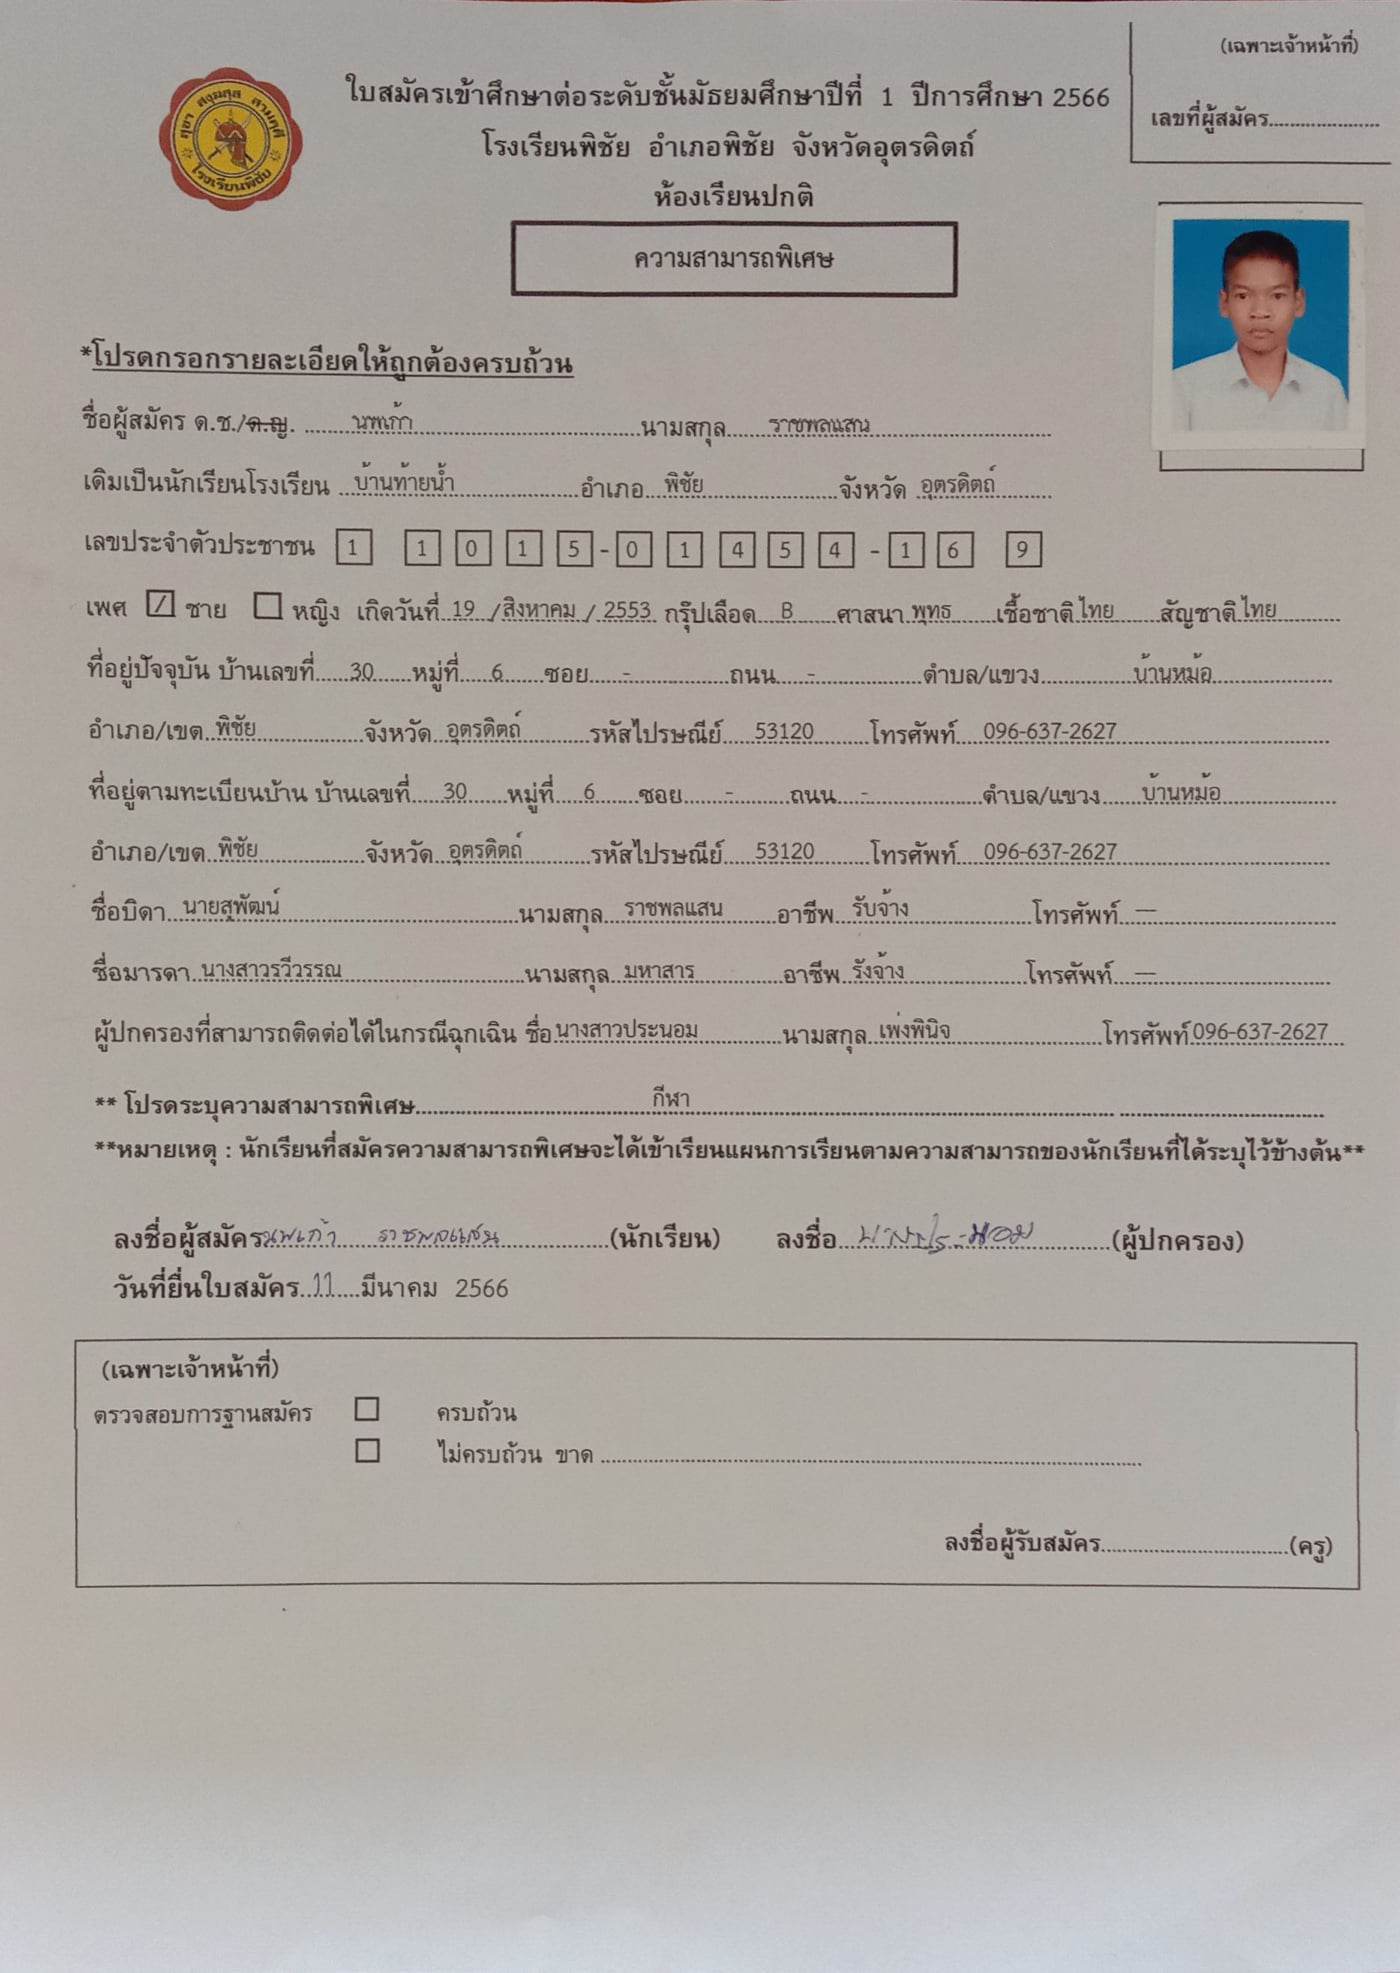 (เฉพาะเจ้าหน้าที่)
เลขที่ผู้สมัคร....................
ใบสมัครเข้าศึกษาต่อระดับชั้นมัธยมศึกษาปีที่ 1 ปีการศึกษา 2566
โรงเรียนพิชัย อำเภอพิชัย จังหวัดอุตรดิตถ์
ห้องเรียนปกติ
ความสามารถพิเศษ
โรงเรียนพิชัย
*โปรดกรอกรายละเอียดให้ถูกต้องครบถ้วน
ชื่อผู้สมัคร ด.ช./ด.ญ. นพเก้า นามสกุล ราชพลแสน
เดิมเป็นนักเรียนโรงเรียน บ้านท้ายน้ำ อำเภอ พิชัย จังหวัด อุตรดิตถ์
เลขประจำตัวประชาชน 1 1 0 1 5 - 0 1 4 5 4 - 1 6 9
เพศ / ชาย หญิง เกิดวันที่ 19 / สิงหาคม / 2553 กรุ๊ปเลือด B ศาสนา พุทธ เชื้อชาติ ไทย สัญชาติ ไทย
ที่อยู่ปัจจุบัน บ้านเลขที่ 30 หมู่ที่ 6 ซอย - ถนน - ตำบล/แขวง บ้านหม้อ
อำเภอ/เขต พิชัย จังหวัด อุตรดิตถ์ รหัสไปรษณีย์ 53120 โทรศัพท์ 096-637-2627
ที่อยู่ตามทะเบียนบ้าน บ้านเลขที่ 30 หมู่ที่ 6 ซอย - ถนน - ตำบล/แขวง บ้านหม้อ
อำเภอ/เขต พิชัย จังหวัด อุตรดิตถ์ รหัสไปรษณีย์ 53120 โทรศัพท์ 096-637-2627
ชื่อบิดา นายสุพัฒน์ นามสกุล ราชพลแสน อาชีพ รับจ้าง โทรศัพท์ —
ชื่อมารดา นางสาวรวีวรรณ นามสกุล มหาสาร อาชีพ รังจ้าง โทรศัพท์ —
ผู้ปกครองที่สามารถติดต่อได้ในกรณีฉุกเฉิน ชื่อ นางสาวประนอม นามสกุล เพ่งพินิจ โทรศัพท์ 096-637-2627
** โปรดระบุความสามารถพิเศษ กีฬา
**หมายเหตุ : นักเรียนที่สมัครความสามารถพิเศษจะได้เข้าเรียนแผนการเรียนตามความสามารถของนักเรียนที่ได้ระบุไว้ข้างต้น**
ลงชื่อผู้สมัคร นพเก้า ราชพลแสน (นักเรียน) ลงชื่อ (ผู้ปกครอง)
วันที่ยื่นใบสมัคร 11 มีนาคม 2566
(เฉพาะเจ้าหน้าที่)
ตรวจสอบการฐานสมัคร ครบถ้วน
ไม่ครบถ้วน ขาด
ลงชื่อผู้รับสมัคร (ครู)